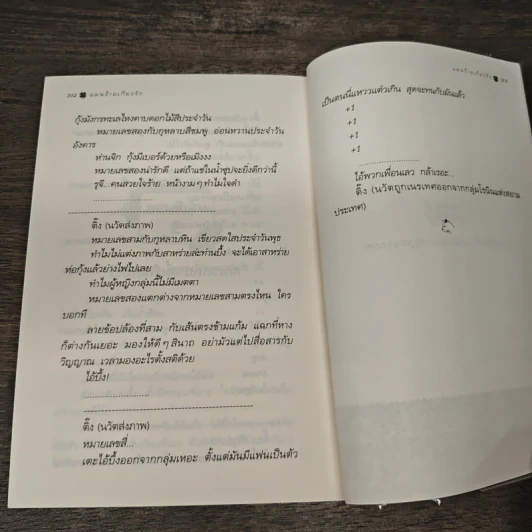 352 แผนร้ายเกียจรัก
กุ้งมังกรทะเลไหงคาบดอกไม้สีประจำวัน
หมายเลขสองกับกุหลาบสีชมพู อ่อนหวานประจำวัน
อังคาร
ห่านจิก กุ้งมีเบอร์ด้วยหรือเมิงงง
หมายเลขสองน่ารักดี แต่ถ้าแช่ในน้ำซุปจะยิ่งดีกว่านี้
รุจี...คนสวยใจร้าย หน้างามๆ ทำไมใจดำ
........................
------------------------------------------------
ติ๊ง (นวัตส่งภาพ)
หมายเลขสามกับกุหลาบหิน เขียวสดใสประจำวันพุธ
ทำไมไม่แต่งภาพกับสาหร่ายล่ะท่านบึ้ง จะได้เอาสาหร่าย
ห่อกุ้งแล้วย่างไฟไปเลย
ทำไมผู้หญิงกลุ่มนี้ไม่มีเมตตา
หมายเลขสองแตกต่างจากหมายเลขสามตรงไหน ใคร
บอกที
ลายข้อปล้องที่สาม กับเส้นตรงข้ามแก้ม แฉกที่หาง
ก็ต่างกันเยอะ มองให้ดีๆ สินาถ อย่ามัวแต่ไปสื่อสารกับ
วิญญาณ เวลามองอะไรตั้งสติด้วย
ไอ้บึ้ง!
........................
------------------------------------------------
ติ๊ง (นวัตส่งภาพ)
หมายเลขสี่...
เตะไอ้บึ้งออกจากกลุ่มเหอะ ตั้งแต่มันมีแฟนเป็นตัว
353
เป็นตนนี่แหววแต๋วเกิน สุดจะทนกับมันแล้ว
+1
+1
+1
+1
........................
ไอ้พวกเพื่อนเลว กล้าเรอะ...
ติ๊ง (นวัตถูกเนรเทศออกจากกลุ่มโรนินแห่งสยาม
ประเทศ)